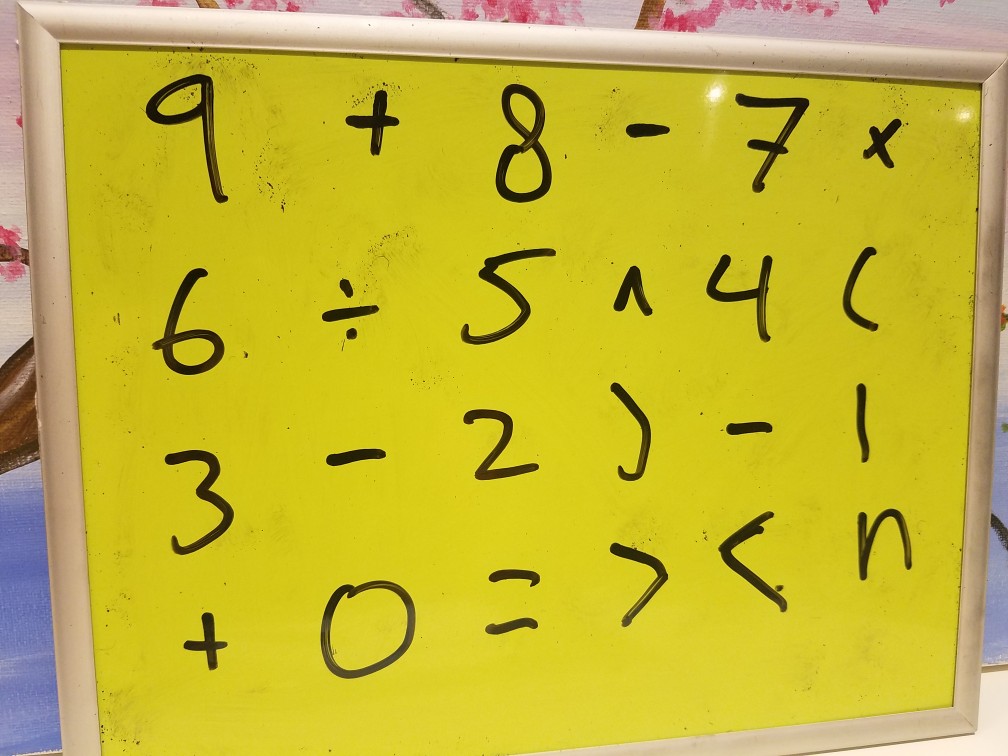 9 + 8 - 7 ×
6 ÷ 5 ^ 4 (
3 - 2 ) - 1
+ 0 = > < n